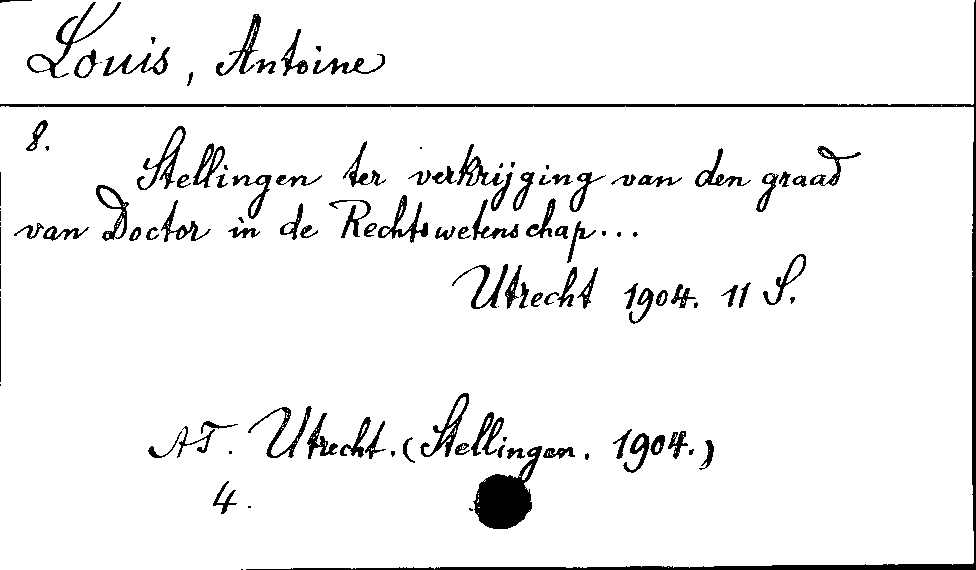 Louis, Antoine
8.
Stellingen ter verkrijging van den graad
van Doctor in de Rechtswetenschap...
Utrecht 1904. 11 S.
AT. Utrecht. (Stellingen. 1904.)
4.